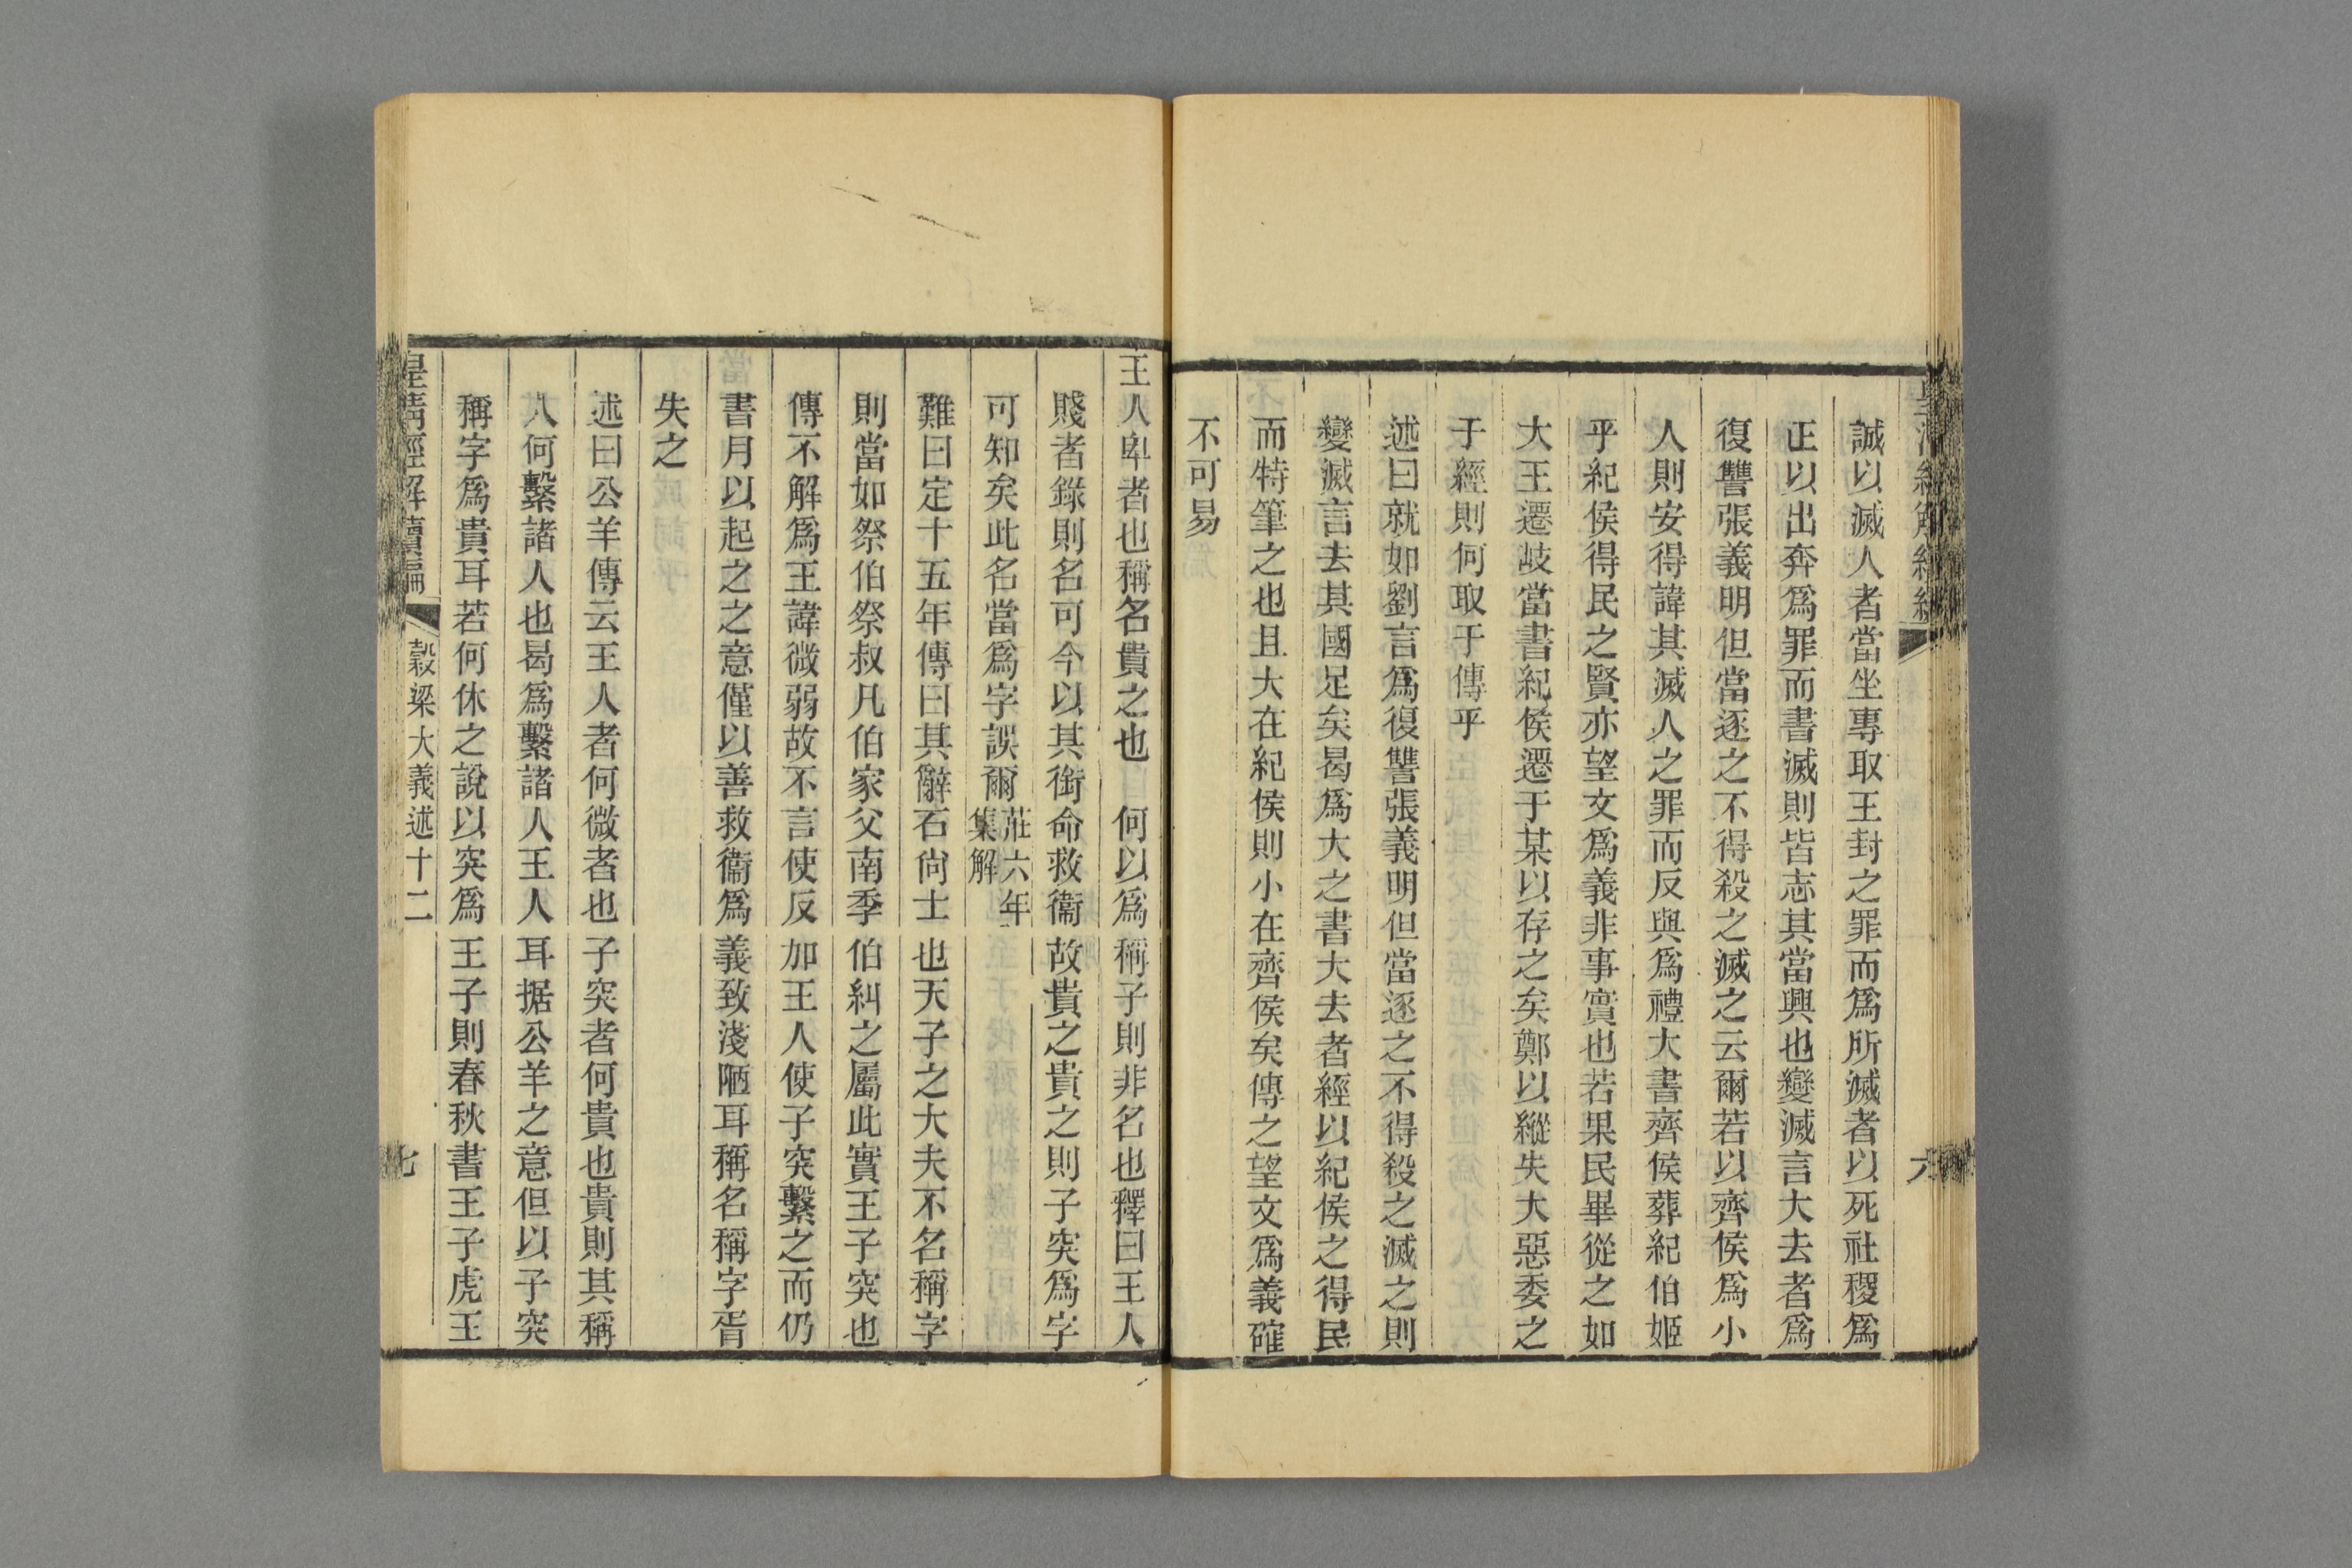 誠以滅人者當坐專取王封之罪而爲所滅者以死社稷爲
正以出奔爲罪而書滅則皆志其當興也變滅言大去者爲
復讐張義明但當逐之不得殺之滅之云爾若以齊侯爲小
人則安得諱其滅人之罪而反與爲禮大書齊侯葬紀伯姬
乎紀侯得民之賢亦望文爲義非事實也若果民畢從之如
大王遷岐當書紀侯遷于某以存之矣鄭以縱失大惡委之
于經則何取于傳乎
述曰就如劉言爲復讐張義明但當逐之不得殺之滅之則
變滅言去其國足矣曷爲大之書大去者經以紀侯之得民
而特筆之也且大在紀侯則小在齊侯矣傳之望文爲義確
不可易
六
王人卑者也稱名貴之也 何以爲稱子則非名也釋曰王人
賤者錄則名可今以其銜命救衞故貴之貴之則子突爲字
可知矣此名當爲字誤爾 莊六年集解
難曰定十五年傳曰其辭石尚士也天子之大夫不名稱字
則當如祭伯祭叔凡伯家父南季伯糾之屬此實王子突也
傳不解爲王諱微弱故不言使反加王人使子突繫之而仍
書月以起之之意僅以善救衞爲義致淺陋耳稱名稱字胥
失之
述曰公羊傳云王人者何微者也子突者何貴也貴則其稱
人何繫諸人也曷爲繫諸人王人耳据公羊之意但以子突
稱字爲貴耳若何休之說以突爲王子則春秋書王子虎王
皇清經解續編 穀梁大義述十二 七